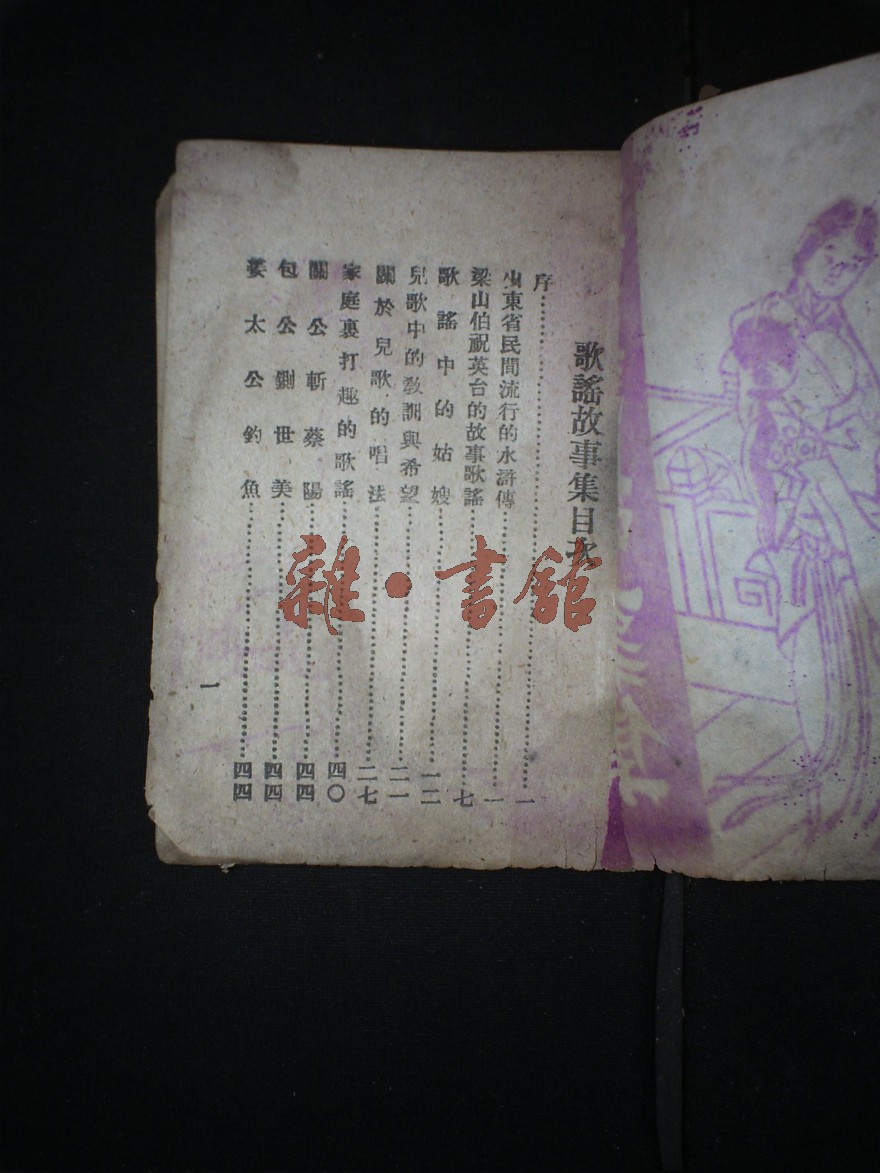 歌謠故事集目次
序……一
山東省民間流行的水滸傳……一
梁山伯祝英台的故事歌謠……七
歌謠中的姑嫂……一二
兒歌中的敎訓與希望……二一
關於兒歌的唱法……二七
家庭裏打趣的歌謠……四〇
關公斬蔡陽……四四
包公鍘世美……四四
姜太公釣魚……四四
一
雜·書館